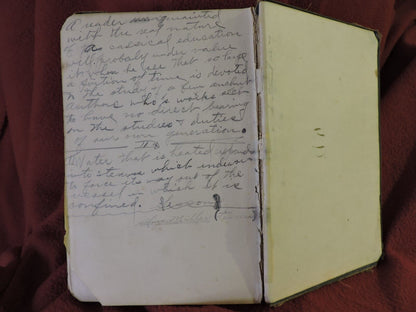 A reader unacquainted
with the real nature
of a classical education
will probaly under value
it when he see that so large
a portion of time is devoted
to the study of a few ancient
authors who's works seem
to have no direct bearing
on the studies & duties
of our own generation.
Water that is heated expands
into steam which endeavors
to force its way out of the
vessel in which it is
confined.